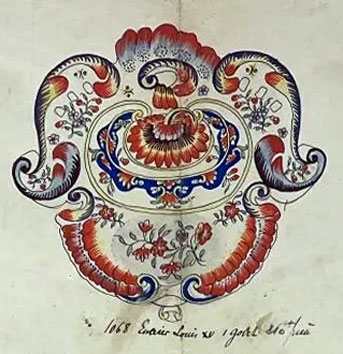 1068 Encrier Louis XV 1 godet